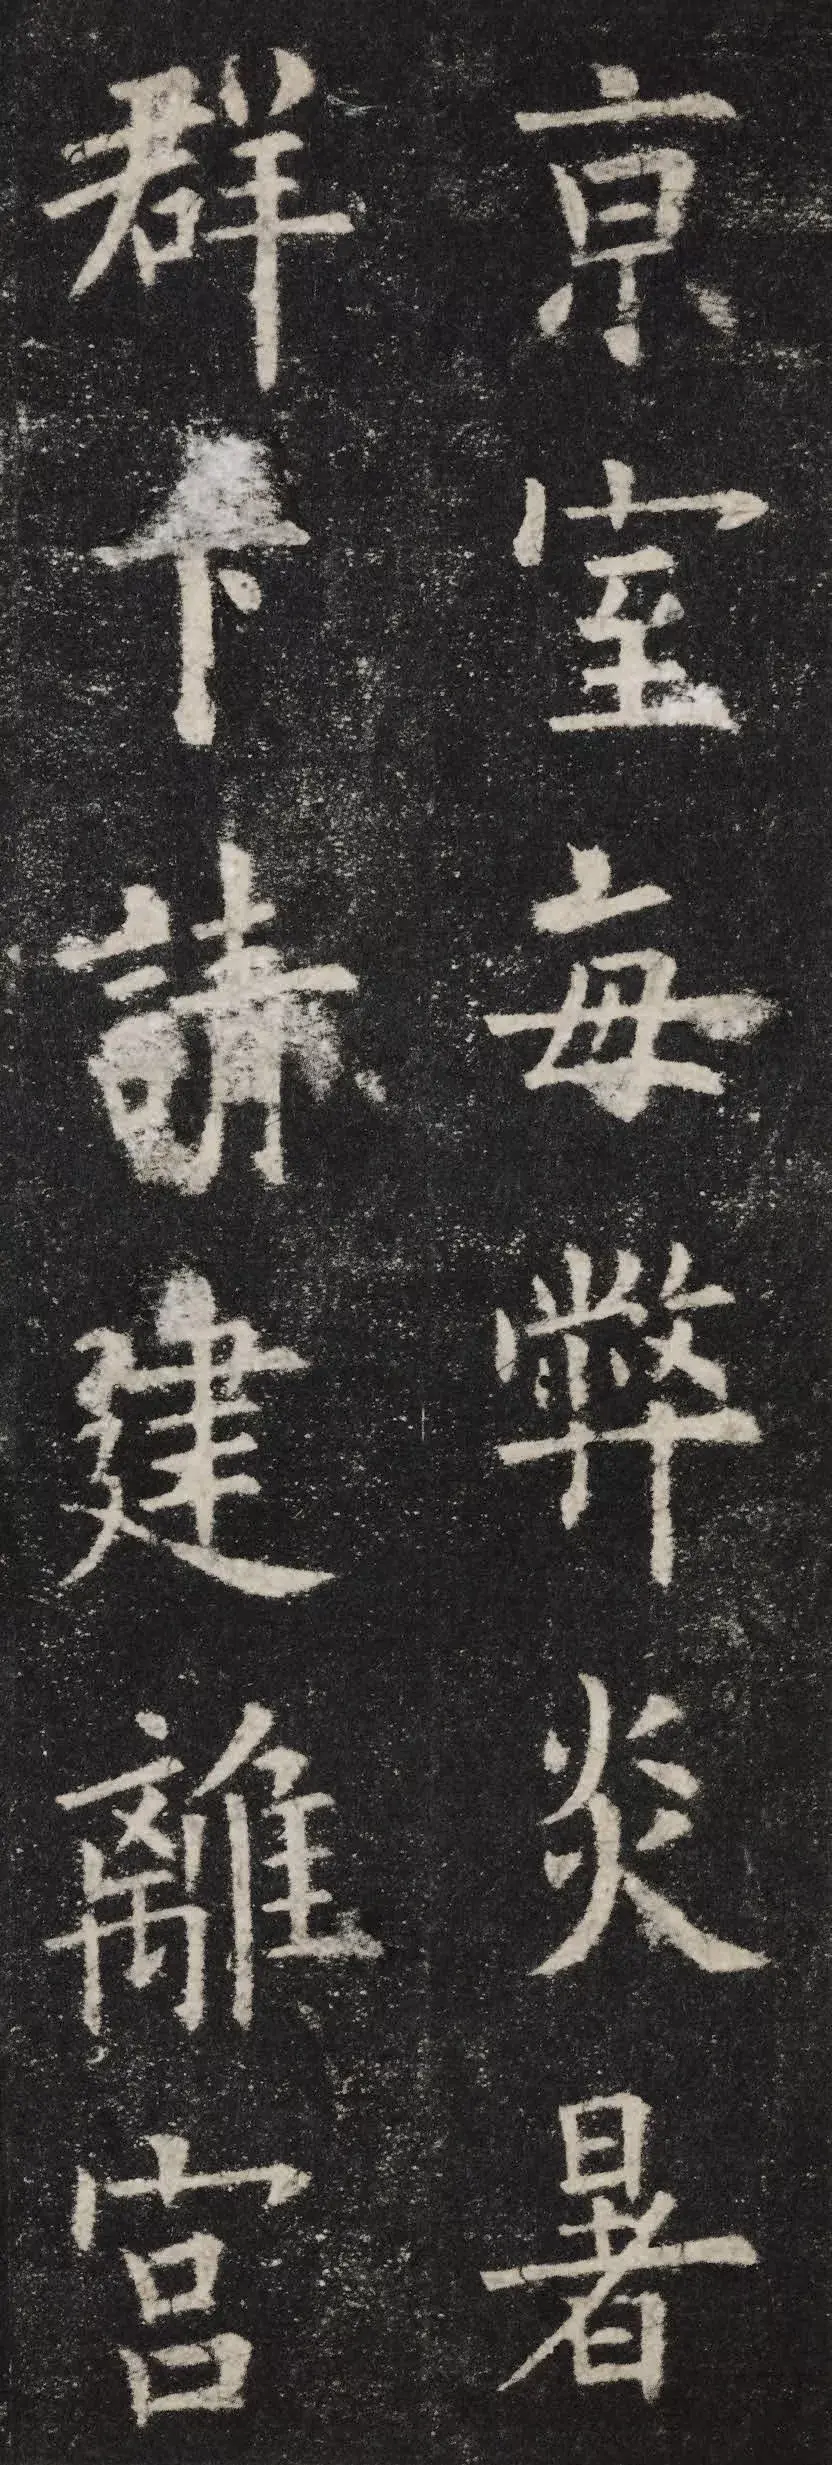 京室每弊炎暑
群下請建離宮